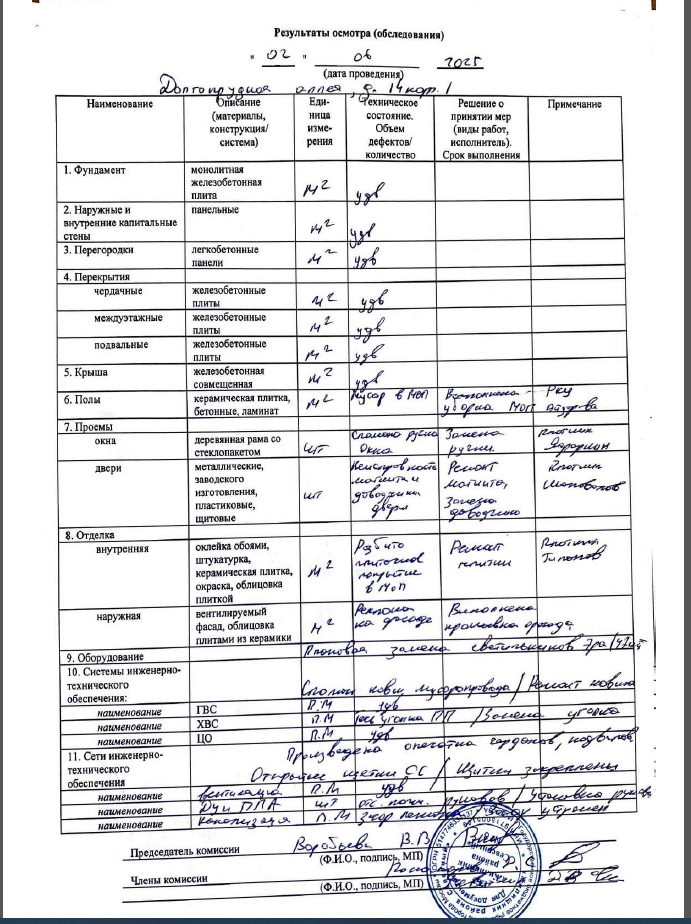 Результаты осмотра (обследования)
" 02 " 06 2025
(дата проведения)
Долгопрудная аллея, д. 14 кор. 1
Наименование Описание (материалы, конструкция/ система) Еди- ница изме- рения Техническое состояние. Объем дефектов/ количество Решение о принятии мер (виды работ, исполнитель). Срок выполнения Примечание
1. Фундамент монолитная железобетонная плита м2 удв
2. Наружные и внутренние капитальные стены панельные м2 удв
3. Перегородки легкобетонные панели м2 удв
4. Перекрытия
чердачные железобетонные плиты м2 удв
междуэтажные железобетонные плиты м2 удв
подвальные железобетонные плиты м2 удв
5. Крыша железобетонная совмещенная м2 удв
6. Полы керамическая плитка, бетонные, ламинат м2 Мусор в МОП Выполнена уборка МОП Рку
7. Проемы
окна деревянная рама со стеклопакетом шт Сломана ручка окна Замена ручки Плотник
двери металлические, заводского изготовления, пластиковые, щитовые шт Неисправность магнита и доводчика двери Ремонт магнита, Замена доводчика Плотник Шаповалов
8. Отделка
внутренняя оклейка обоями, штукатурка, керамическая плитка, окраска, облицовка плиткой м2 Разбито плиточное покрытие в МОП Ремонт плитки Плотник
наружная вентилируемый фасад, облицовка плитами из керамики м2 Реклама на фасаде Выполнена промывка фасада
9. Оборудование Плановая замена светильников Эра
10. Системы инженерно- технического обеспечения: Сломан ковш мусоропровода / Ремонт ковша
наименование ГВС П.М удв
наименование ХВС П.М Течь уголка ПП / Замена уголка
наименование ЦО П.М удв
11. Сети инженерно- технического обеспечения Произведена опечатка чердаков, подвалов
Открытые щитки СС / Щитки закреплены
наименование вентиляция П.М удв
наименование Ду и ППА шт отс. рукавов / Установка рукава
наименование канализация П.М Засор / Засор устранен
Председатель комиссии Воробьева В.В
(Ф.И.О., подпись, МП)
Члены комиссии
(Ф.И.О., подпись, МП)